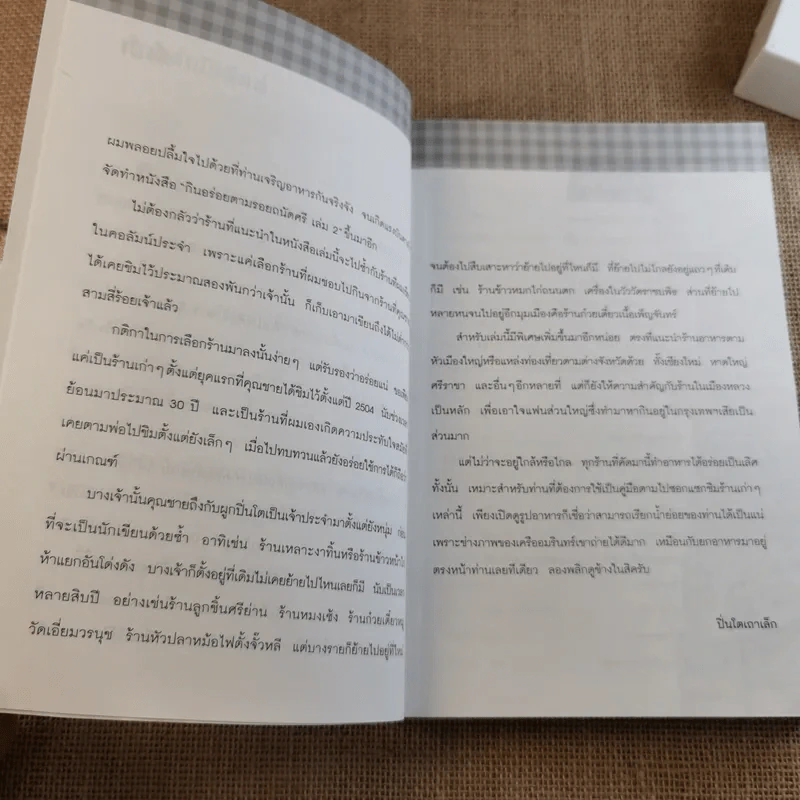 ผมพลอยปลื้มใจไปด้วยที่ท่านเจริญอาหารกันจริงจัง จนเกิดแรงบันดาล
จัดทำหนังสือ "กินอร่อยตามรอยถนัดศรี เล่ม 2" ขึ้นมาอีก
ไม่ต้องกลัวว่าร้านที่แนะนำในหนังสือเล่มนี้จะไปซ้ำกับร้านที่ผม
ในคอลัมน์ประจำ เพราะแค่เลือกร้านที่ผมชอบไปกินจากร้านที่คุณชาย
ได้เคยชิมไว้ประมาณสองพันกว่าเจ้านั้น ก็เก็บเอามาเขียนถึงได้ไม่ต่ำกว่า
สามสี่ร้อยเจ้าแล้ว
กติกาในการเลือกร้านมาลงนั้นง่ายๆ แต่รับรองว่าอร่อยแน่
แค่เป็นร้านเก่าๆ ตั้งแต่ยุคแรกที่คุณชายได้ชิมไว้ตั้งแต่ปี 2504 นับช่วงเวลา
ย้อนมาประมาณ 30 ปี และเป็นร้านที่ผมเองเกิดความประทับใจ
เคยตามพ่อไปชิมตั้งแต่ยังเล็กๆ เมื่อไปทบทวนแล้วยังอร่อยใช้การได้ก็ถือว่า
ผ่านเกณฑ์
บางเจ้านั้นคุณชายถึงกับผูกปิ่นโตเป็นเจ้าประจำมาตั้งแต่ยังหนุ่ม ก่อน
ที่จะเป็นนักเขียนด้วยซ้ำ อาทิเช่น ร้านเหลาะงาทิ้นหรือร้านข้าวหน้าไก่
ห้าแยกอันโด่งดัง บางเจ้าก็ตั้งอยู่ที่เดิมไม่เคยย้ายไปไหนเลยก็มี นับเป็นเวลา
หลายสิบปี อย่างเช่นร้านลูกชิ้นศรีย่าน ร้านหมงเซ้ง ร้านก๋วยเตี๋ยวหมู
วัดเอี่ยมวรนุช ร้านหัวปลาหม้อไฟตั้งจั๊วหลี แต่บางรายก็ย้ายไปอยู่ที่ใหม่
จนต้องไปสืบเสาะหาว่าย้ายไปอยู่ที่ไหนก็มี ที่ย้ายไปไม่ไกลยังอยู่แถวๆ ที่เดิม
ก็มี เช่น ร้านข้าวหมกไก่ถนนตก เครื่องในวัววัดราชนพิธ ส่วนที่ย้ายไป
หลายหนจนไปอยู่อีกมุมเมืองคือร้านก๋วยเตี๋ยวเนื้อเพ็ญจันทร์
สำหรับเล่มนี้มีพิเศษเพิ่มขึ้นมาอีกหน่อย ตรงที่แนะนำร้านอาหารตาม
หัวเมืองใหญ่หรือแหล่งท่องเที่ยวตามต่างจังหวัดด้วย ทั้งเชียงใหม่ หาดใหญ่
ศรีราชา และอื่นๆ อีกหลายที่ แต่ก็ยังให้ความสำคัญกับร้านในเมืองหลวง
เป็นหลัก เพื่อเอาใจแฟนส่วนใหญ่ซึ่งทำมาหากินอยู่ในกรุงเทพฯ เสียเป็น
ส่วนมาก
แต่ไม่ว่าจะอยู่ใกล้หรือไกล ทุกร้านที่คัดมานี้ทำอาหารได้อร่อยเป็นเลิศ
ทั้งนั้น เหมาะสำหรับท่านที่ต้องการใช้เป็นคู่มือตามไปซอกแซกชิมร้านเก่าๆ
เหล่านี้ เพียงเปิดดูรูปอาหารก็เชื่อว่าสามารถเรียกน้ำย่อยของท่านได้เป็นแน่
เพราะช่างภาพของเครืออมรินทร์เขาถ่ายได้ดีมาก เหมือนกับยกอาหารมาอยู่
ตรงหน้าท่านเลยทีเดียว ลองพลิกดูข้างในสิครับ
ปิ่นโตเถาเล็ก